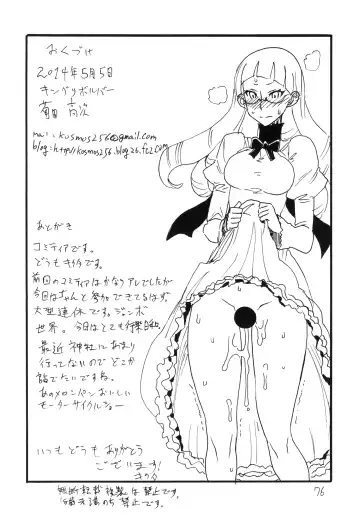 おくづけ
2014年5月5日
キングリボルバー
菊田 高次
mail: kosmos256@gmail.com
blog: http://kosmos256.blog26.fc2.com
あとがき
コミティアです。
どうもキクタです。
前回のコミティアはかなりアレでしたが
今回はちゃんと参加できてるはず。
大型連休です。
世界。今日はとても
最近 神社にあまり
行ってないのでどこか
詣でたいですね。
あのメロンパンおいしい
モーターサイクルショー
いつもどうもありがとう
ございます!
無断転載 複製は禁止です。
禁止です。
76